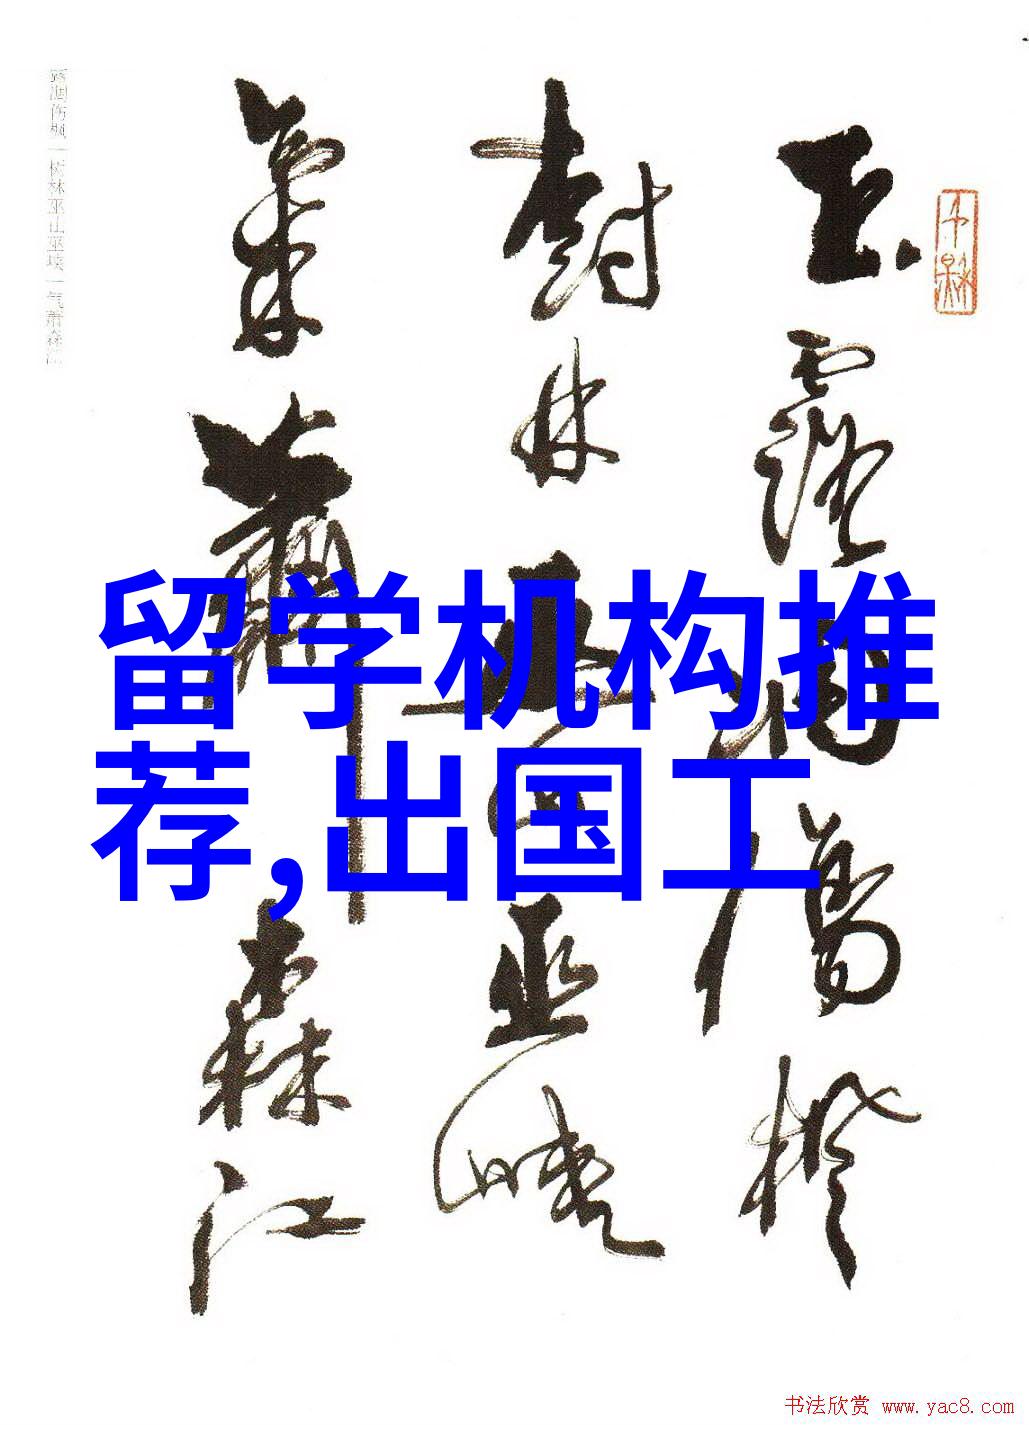 留学机构推
荐,出国工
玉露凋伤枫
树林巫山巫峡
气萧森江
书法欣赏 www.yac8.com